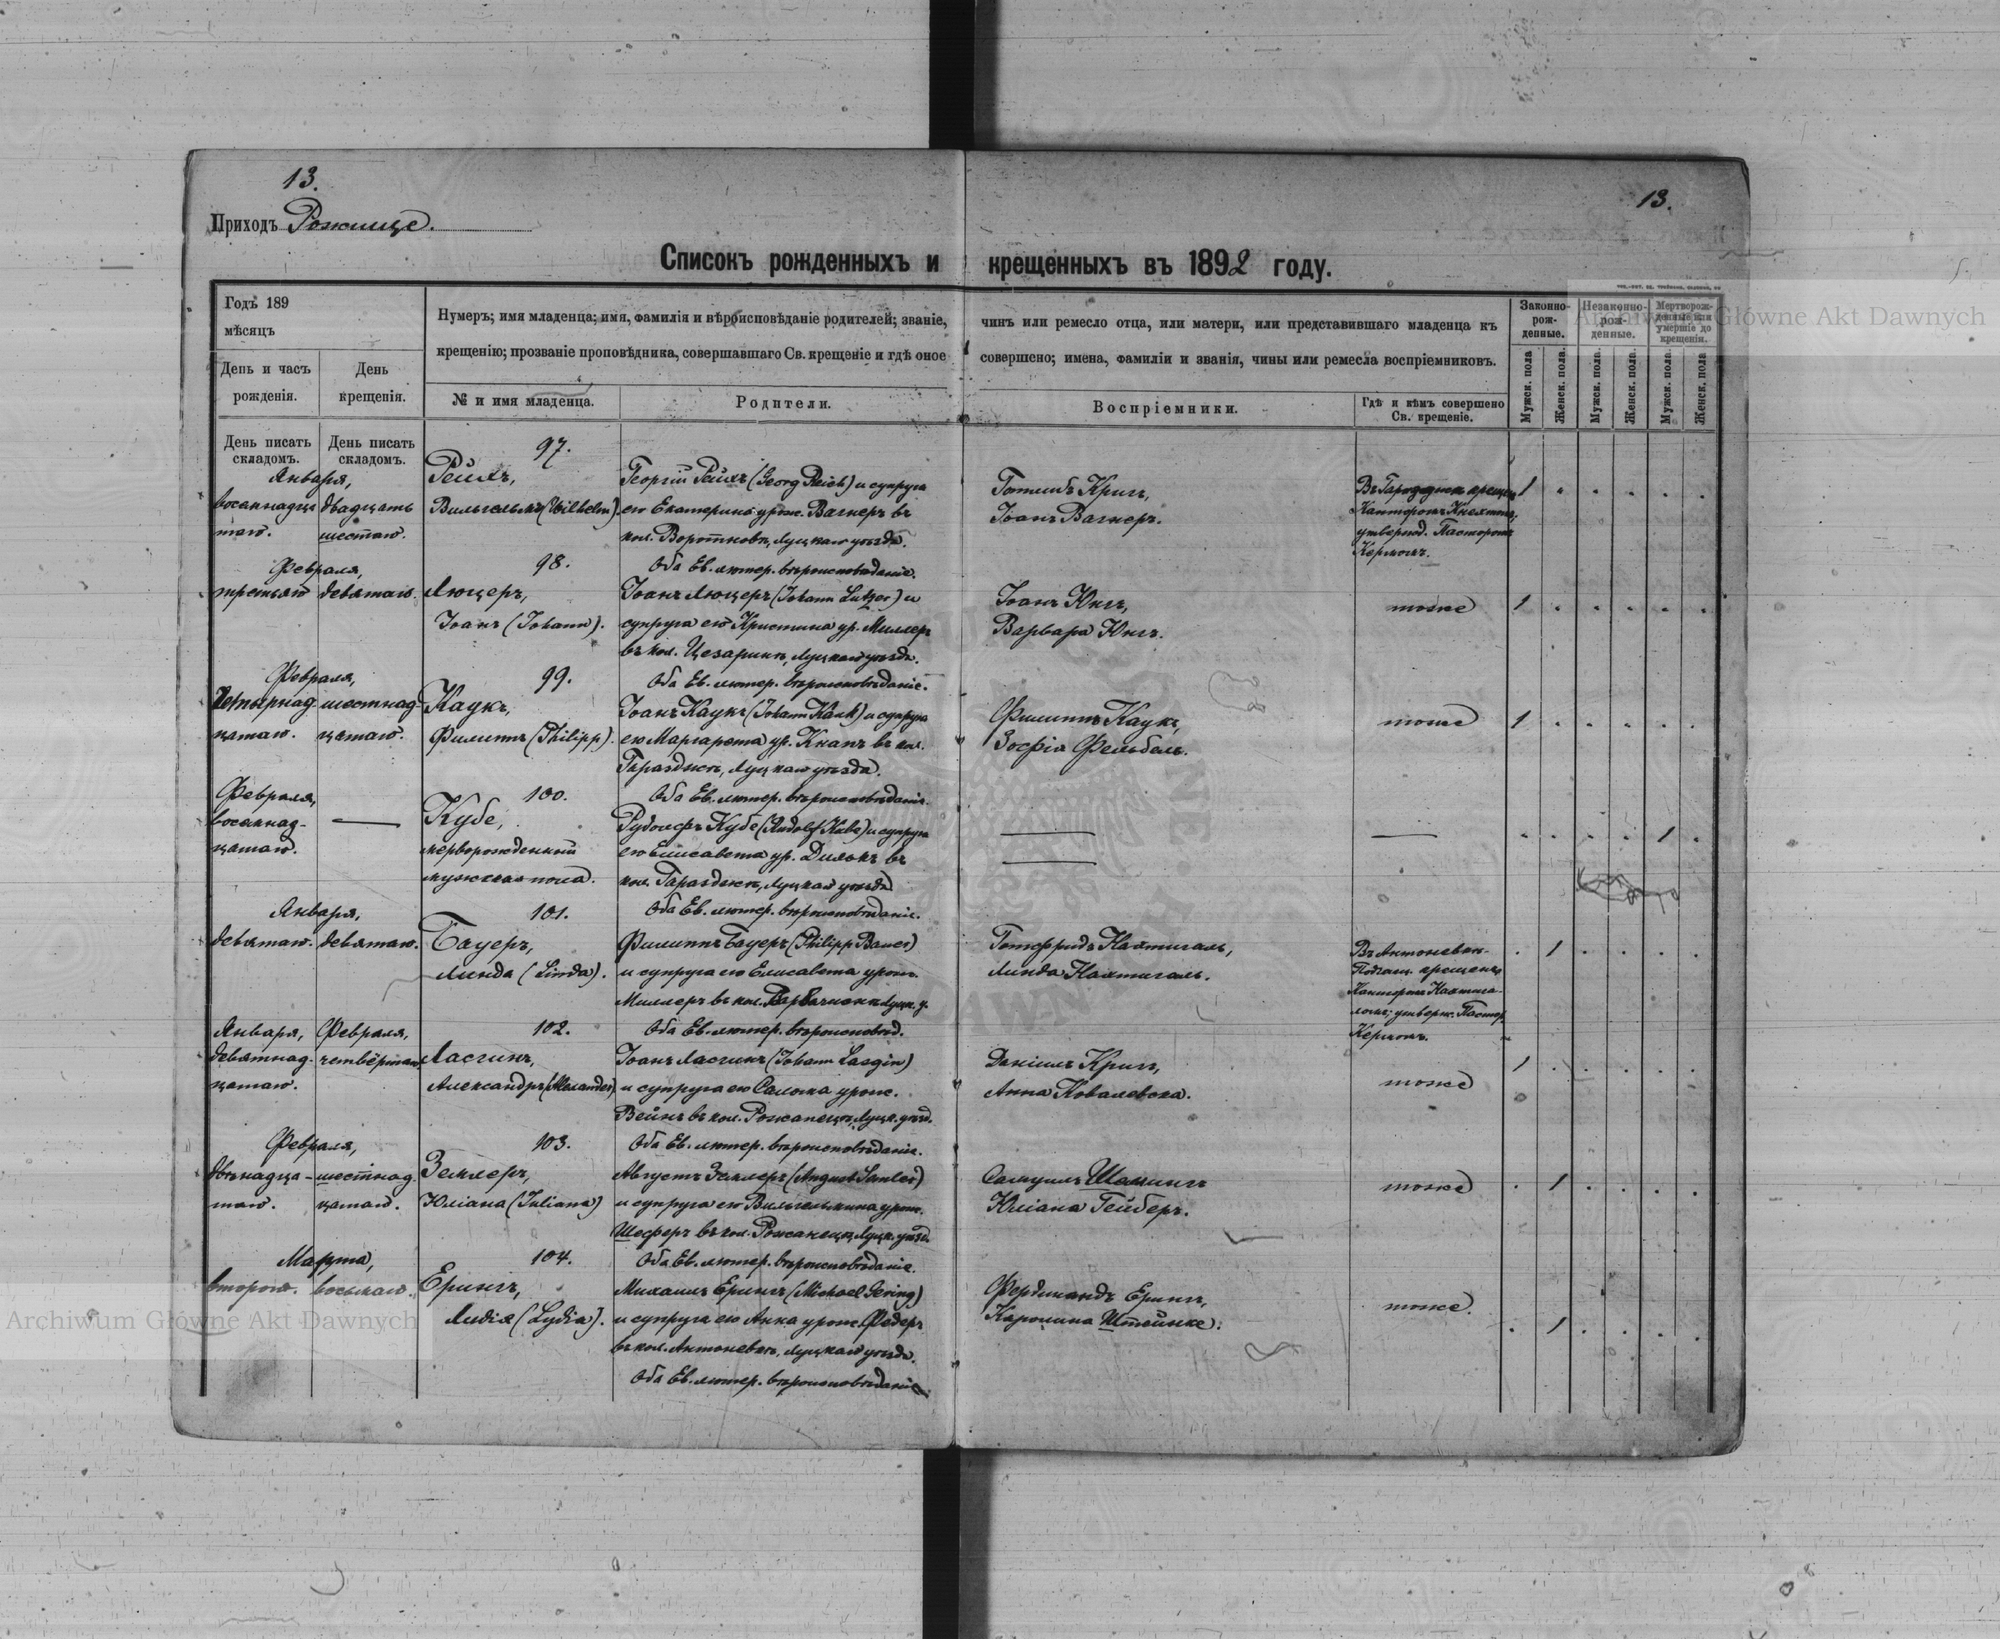 13.
13.
Приходъ Рожище.
Списокъ рожденныхъ и крещенныхъ въ 1892 году.
Годъ 189
мѣсяцъ
День и часъ рожденія.
День крещенія.
Нумеръ; имя младенца; имя, фамилія и вѣроисповѣданіе родителей; званіе, чинъ или ремесло отца, или матери, или представившаго младенца къ
крещенію; прозваніе проповѣдника, совершавшаго Св. крещеніе и гдѣ оное совершено; имена, фамиліи и званія, чины или ремесла воспріемниковъ.
№ и имя младенца.
Родители.
Воспріемники.
Гдѣ и кѣмъ совершено Св. крещеніе.
Законно-рож-денные.
Незаконно-рож-денные.
Мертворож-денные или умершіе до крещенія.
Мужск. пола
Женск. пола.
Мужск. пола.
Женск. пола.
Мужск. пола.
Женск. пола
День писать складомъ.
День писать складомъ.
97.
Января,
восемнадца
таго.
двадцать
шестаго.
Рейхъ,
Вильгельмъ (Wilhelm).
Георгій Рейхъ (Georg Reich) и супруга
его Екатерина урож. Вагнеръ въ
кол. Воротновъ, Луцкаго уѣзда.
Оба Ев. лютер. вѣроисповѣданіе.
Готлибъ Кригъ,
Іоанъ Вагнеръ.
Канторомъ
утвержд. Пасторомъ
Кермомъ.
1
98.
Февраля,
третьяго
девятаго.
Люцеръ,
Іоанъ (Johann).
Іоанъ Люцеръ (Johann Lutzer) и
супруга его Кристина ур. Миллеръ
въ кол. Цезаринъ, Луцкаго уѣзда.
Оба Ев. лютер. вѣроисповѣданіе.
Іоанъ Юнгъ,
Варвара Юнгъ.
тоже
1
99.
Февраля,
Четырнад
цатаго.
шестнад
цатаго.
Каукъ,
Филиппъ (Philipp).
Іоанъ Каукъ (Johann Kauk) и супруга
его Маргарета ур. Кнапъ въ кол.
Гараздже, Луцкаго уѣзда.
Оба Ев. лютер. вѣроисповѣданіе.
Филиппъ Каукъ,
Зофія Фельбель.
тоже
1
100.
Февраля,
восемнад-
цатаго.
Кубе,
мерворожденный
мужскаго пола.
Рудольфъ Кубе (Rudolf Kube) и супруга
его Елисавета ур. въ
кол. Гараздже, Луцкаго уѣзда
Оба Ев. лютер. вѣроисповѣданіе.
1
101.
Января,
девятаго.
девятаго.
Бауеръ,
Линда (Linda).
Филиппъ Бауеръ (Philipp Bauer)
и супруга его Елисавета урож.
Миллеръ въ кол. Луцк. у.
Оба Ев. лютер. вѣроисповѣд.
Готфридъ Нахтигаль,
Линда Нахтигаль.
Въ Антоневкѣ-
крещенъ
Канторомъ Нахтига-
лемъ; утверж. Пастор.
Кермомъ.
1
102.
Января,
девятнад.
цатаго.
Февраля,
четвёртаго
Ласгинъ,
Александръ (Alexander)
Іоанъ Ласгинъ (Johann Lasgin)
и супруга его Саломя урож.
Вейнъ въ кол. Рожанецкъ, Луцк. уѣзд.
Оба Ев. лютер. вѣроисповѣданіе.
Даніилъ Кригъ,
Анна Ковалевска.
тоже
1
103.
Февраля,
двѣнадца-
таго.
шестнад.
цатаго.
Землеръ,
Юліана (Juliana)
Августъ Землеръ (August Semler)
и супруга его Вильгельмина урож.
Шеферъ въ кол. Рожанецкъ, Луцк. уѣзд.
Оба Ев. лютер. вѣроисповѣданіе.
Самуилъ
Юліана Гейберъ.
тоже
1
104.
Марта,
второго.
восьмаго.
Ерингъ,
Лидія (Lydia).
Михаилъ Ерингъ (Michael Jering)
и супруга его Анна урож. Федеръ
въ кол. Антоневкѣ, Луцкаго уѣзда.
Оба Ев. лютер. вѣроисповѣданіе.
Фердинандъ Ерингъ,
Каролина Штейнке.
тоже.
1
Archiwum Główne Akt Dawnych
Archiwum Główne Akt Dawnych